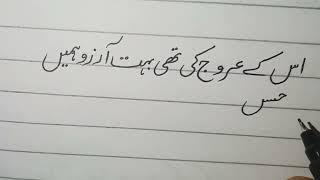 اس کے عروج کی تھی بہت آرزو ہمیں
جس